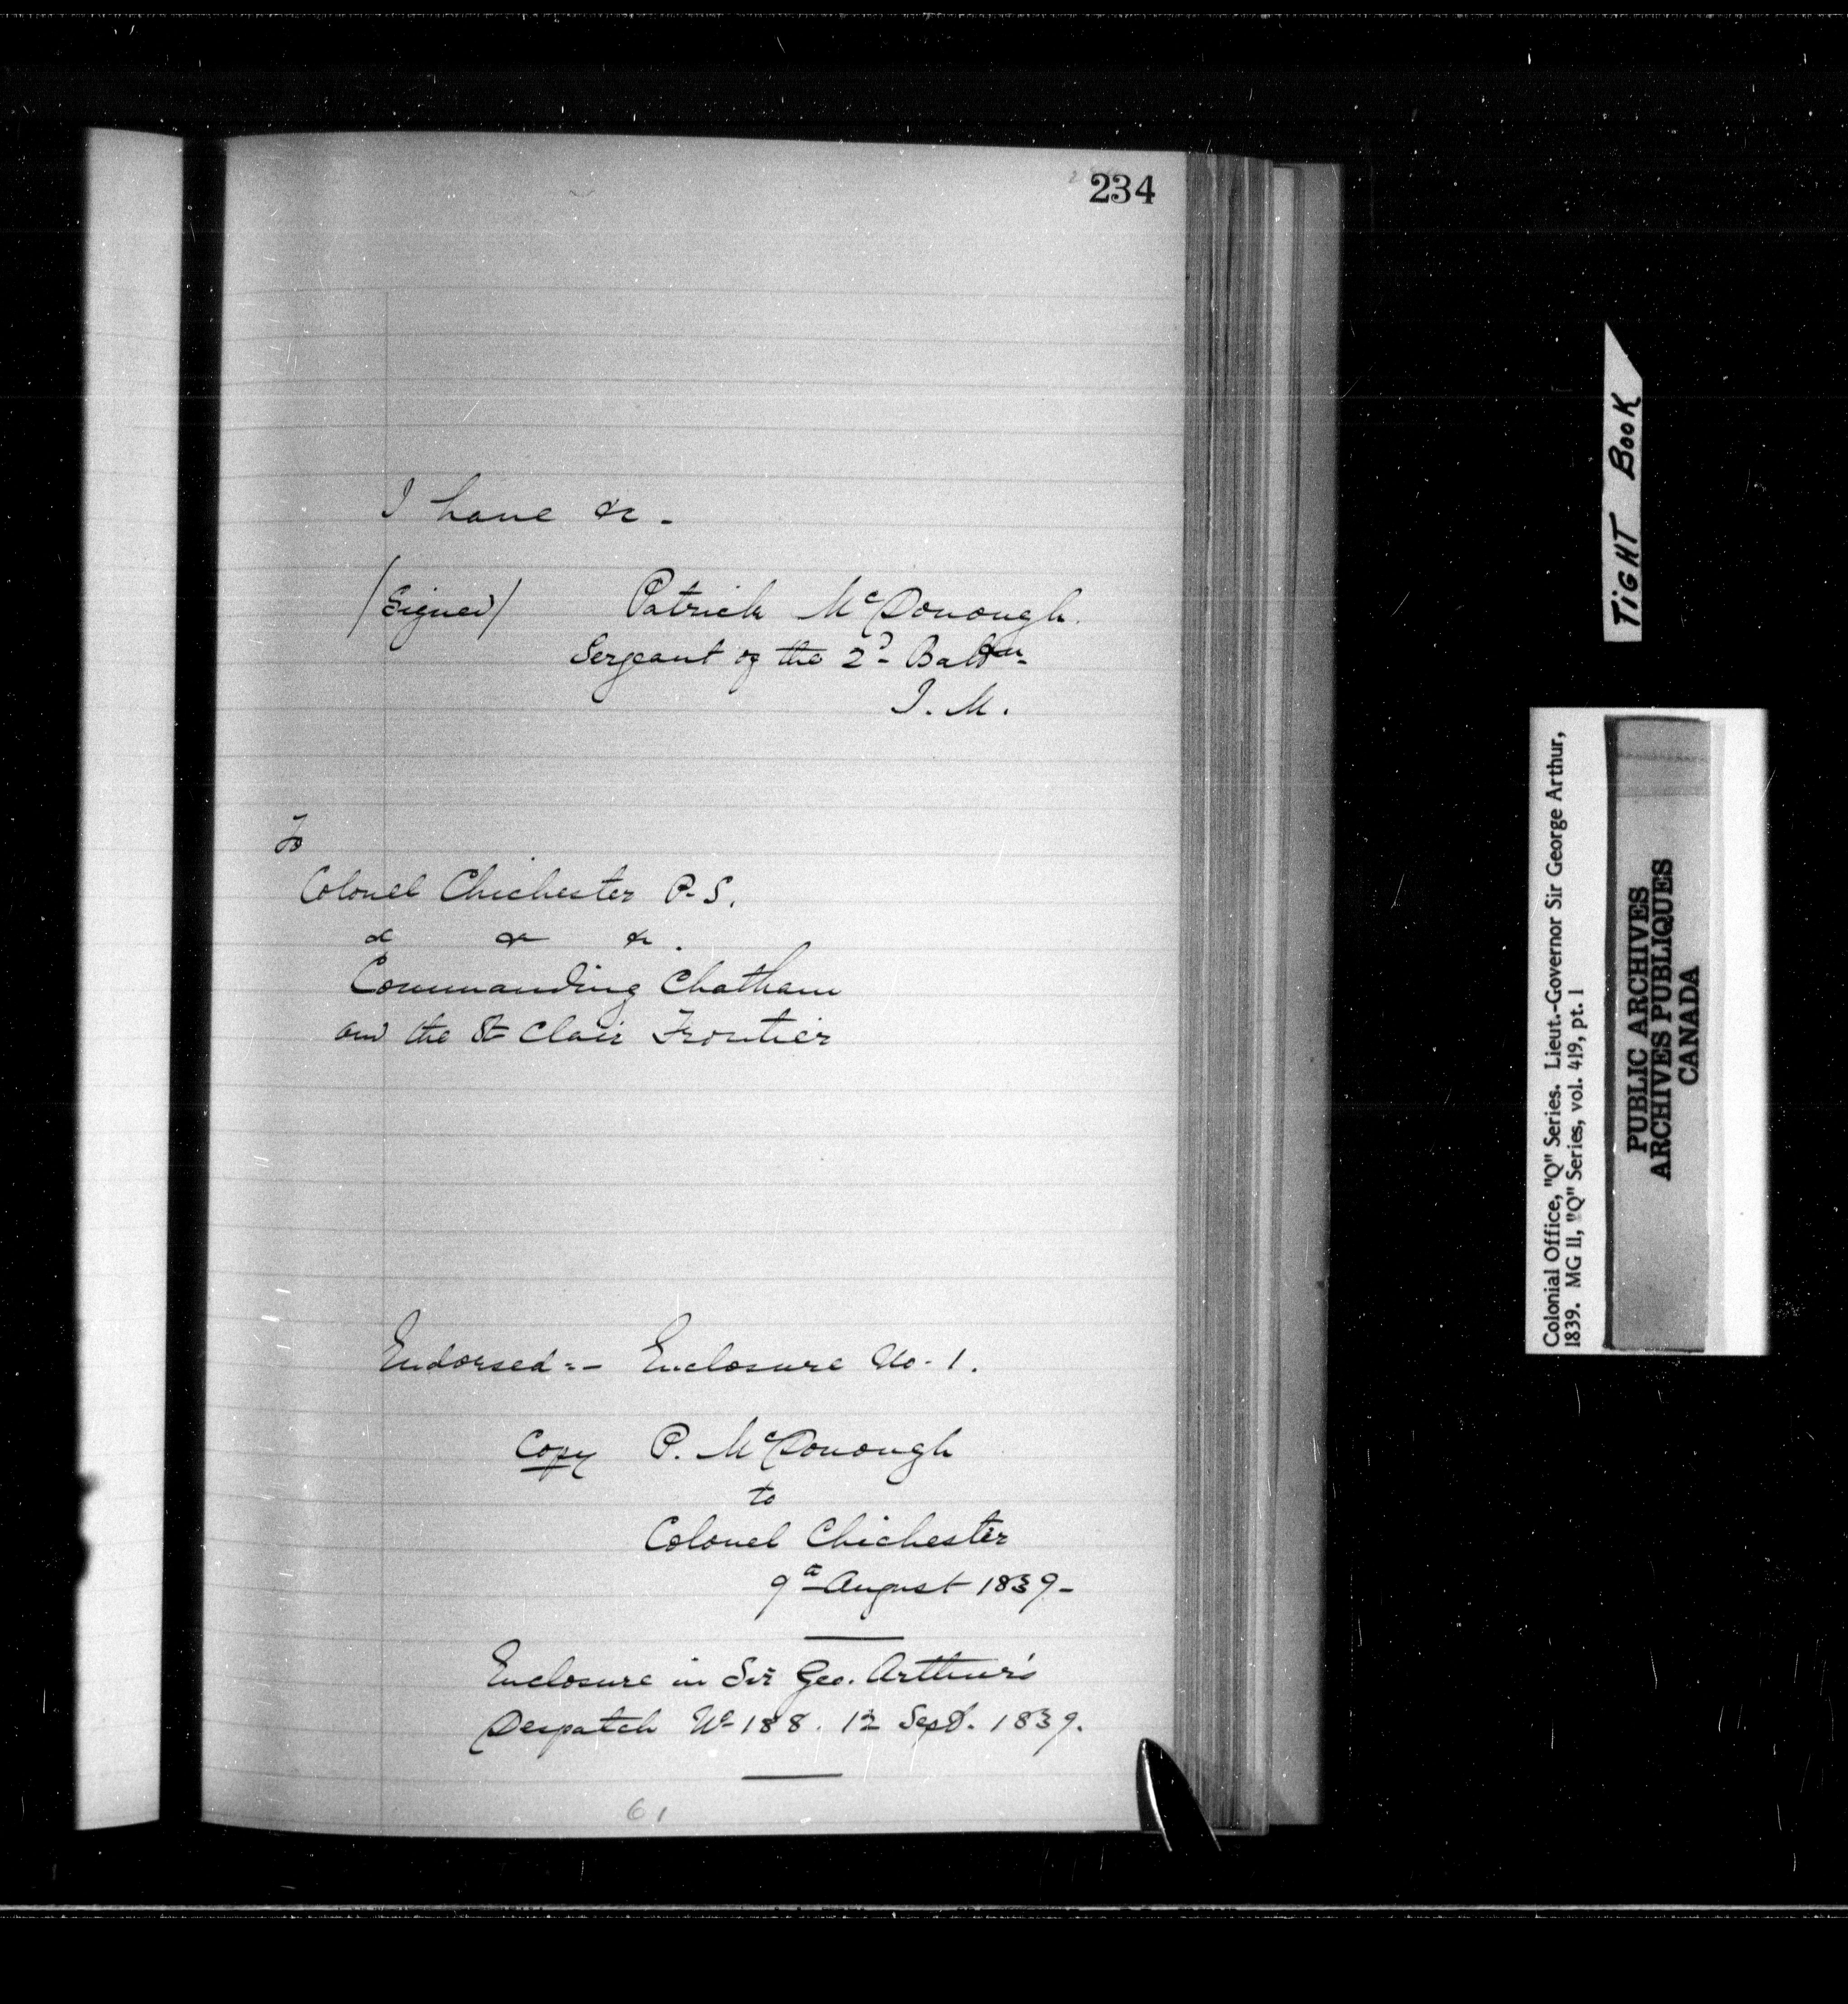 234
I have &c.
(Signed) Patrick McDonough.
Sergeant of the 2d Battn
I. M.
To
Colonel Chichester P. S.
&c &c &c.
Commanding Chatham
and the St Clair Frontier
Endorsed:- Enclosure No. 1.
Copy P. McDonough
to
Colonel Chichester
9th August 1839-
Enclosure in Sir Geo. Arthur's
Despatch No 188. 12 Sept. 1839.
61
TIGHT BOOK
Colonial Office, "Q" Series. Lieut.-Governor Sir George Arthur,
1839. MG 11, "Q" Series, vol. 419, pt. 1
PUBLIC ARCHIVES
ARCHIVES PUBLIQUES
CANADA